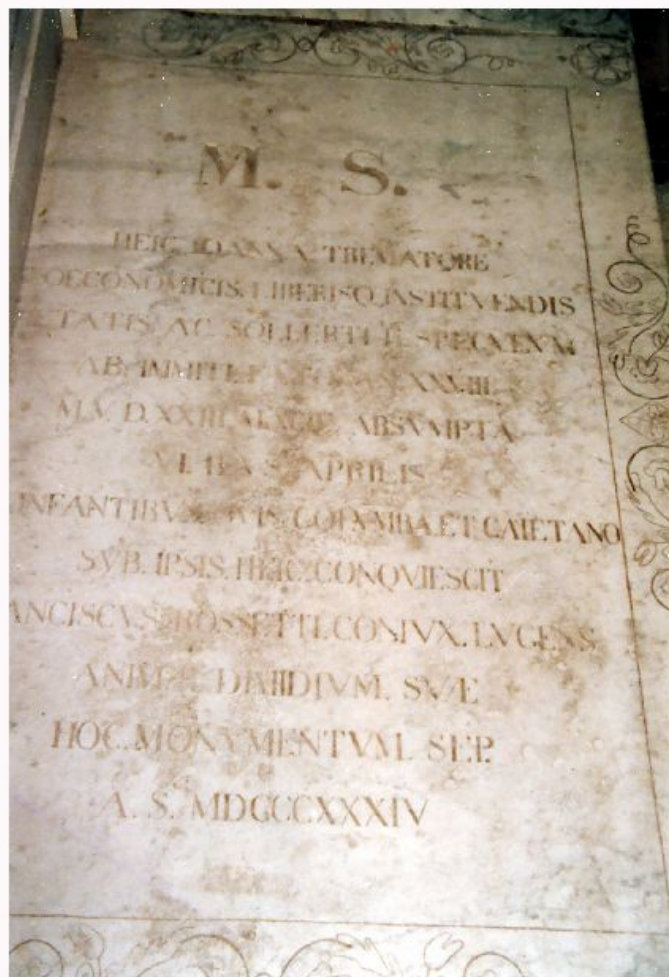 M. S.
HEIC. IOANNA. TREMATORE
OECONOMICIS. LIBERISQ. INSTITVENDIS
TATIS. AC. SOLLERTIE. SPECVLVM
AB. IMMITI.
M. V. D. XXIII. ABSVMPTA
APRILIS
INFANTIBVS. COLVMBA. ET. CAIETANO
SVB. IPSIS. HEIC. CONQVIESCIT
ANCISCVS. ROSSETTI. CONIVX. LVGENS
DIMIDIVM. SVÆ
HOC. MONVMENTVM. SEP.
A. S. MDCCCXXXIV